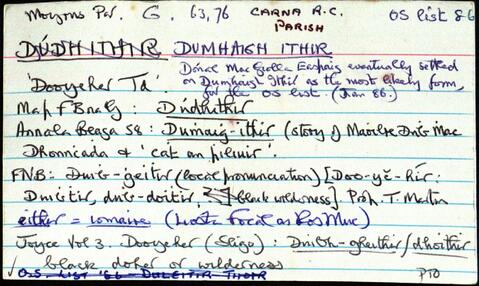 Moyrus Par. G. 63, 76 CARNA R.C. PARISH OS list 86
DÚDHITHIR DUMHAIGH ITHIR
Dónal Mac Giolla Easpaig eventually settled
on Dumhaigh Ithir as the most likely form,
for the OS list. (Jan 86.)
'Dooyeher Td'.
Map & Bnd Rg: Dúdhithir
Annála Beaga 58: Dumaig-ithir (story of Maoilre Dub Mac
Dhonncada & 'cat an piciúir'.
FNB: Duib-geitir (local pronunciation) [Doo-yĕ-hir:
Dubitir, dub-doitir, black wilderness] Prof. T. Martin
either = iomaire (Liosta Focal as Ros Muc)
Joyce Vol 3. Dooyeher (Sligo): Duibh-gheithir/dhoithir
✓ black doher or wilderness
O.S. LIST '86 - DULEITIR THOIR PTO